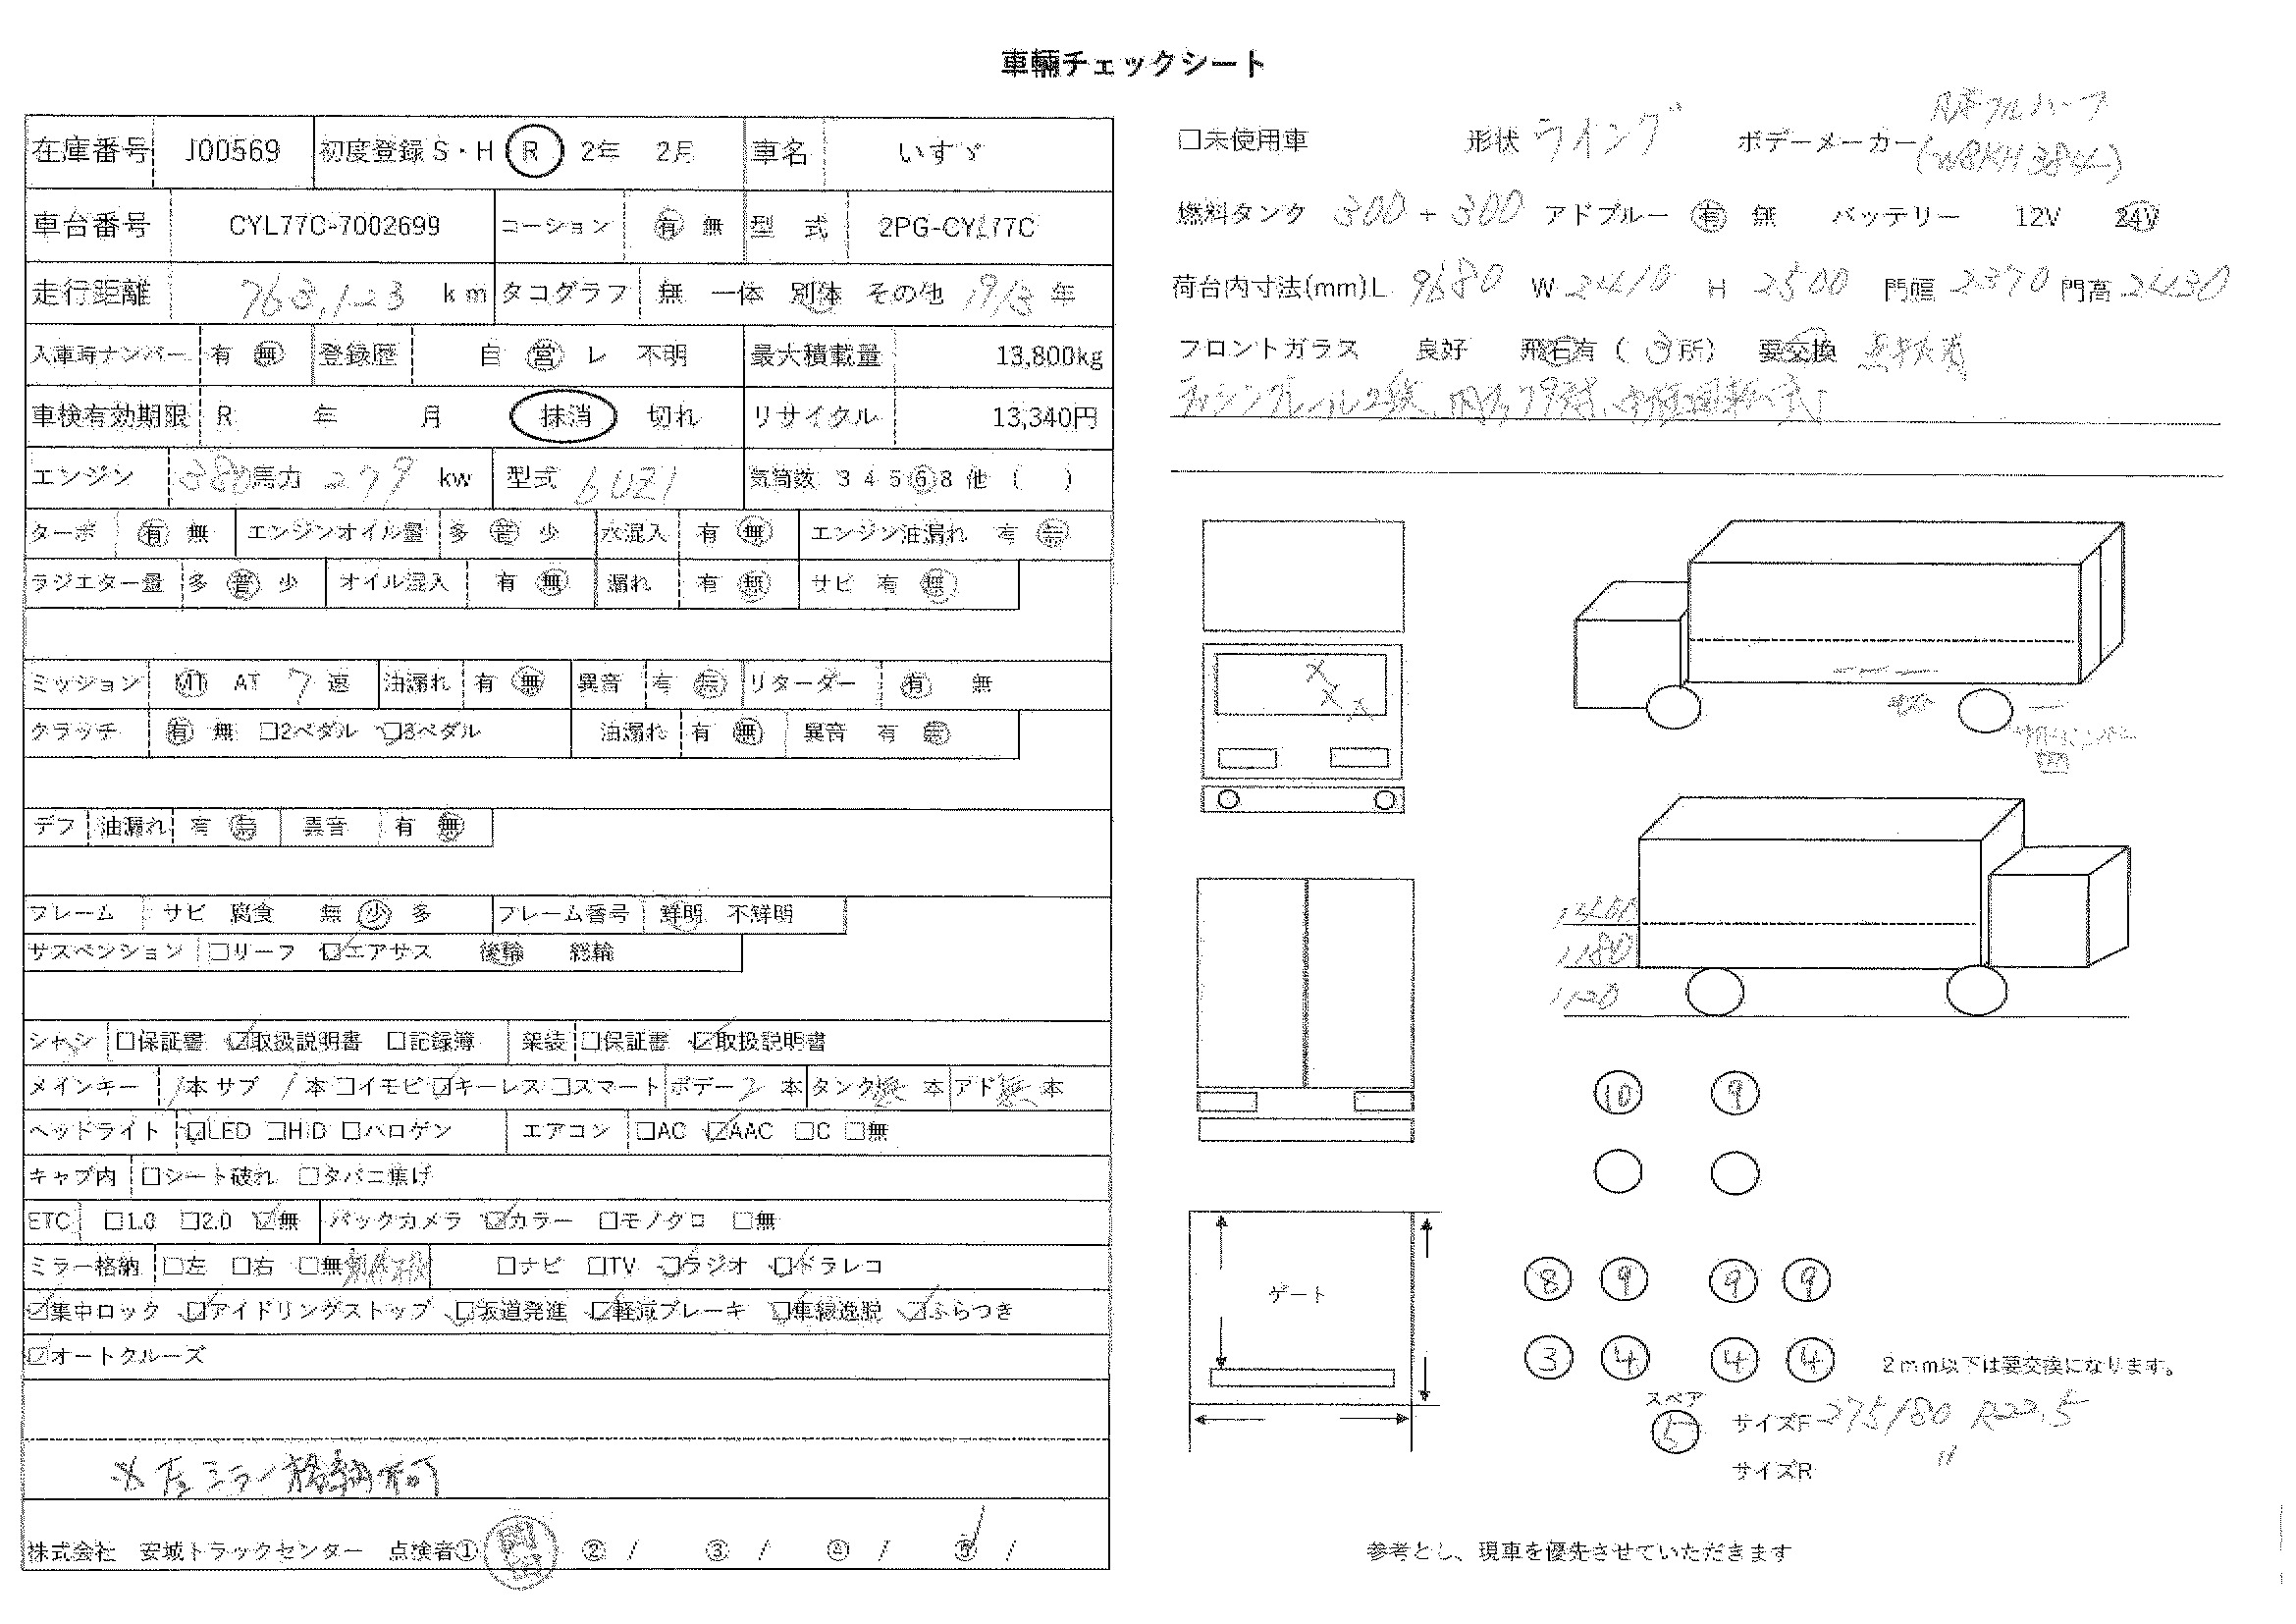 車輛チェックシート
在庫番号 J00569 初度登録 S・H R 2年 2月 車名 いすゞ
車台番号 CYL77C-7002699 コーション 有 無 型 式 2PG-CYL77C
走行距離 763,123 km タコグラフ 無 一体 別体 その他 19/3 年
入庫時ナンバー 有 無 登録歴 自 営 レ 不明 最大積載量 13,800kg
車検有効期限 R 年 月 抹消 切れ リサイクル 13,340円
エンジン 380馬力 279 kw 型式 6UZ1 気筒数 3 4 5 6 8 他 ( )
ターボ 有 無 エンジンオイル量 多 普 少 水混入 有 無 エンジン油漏れ 有 無
ラジエター量 多 普 少 オイル混入 有 無 漏れ 有 無 サビ 有 無
ミッション MT AT 7 速 油漏れ 有 無 異音 有 無 リターダー 有 無
クラッチ 有 無 □2ペダル □3ペダル 油漏れ 有 無 異音 有 無
デフ 油漏れ 有 無 異音 有 無
フレーム サビ 腐食 無 少 多 フレーム番号 鮮明 不鮮明
サスペンション □リーフ ☑エアサス 後輪 総輪
シャシ □保証書 ☑取扱説明書 □記録簿 架装 □保証書 ☑取扱説明書
メインキー 1本 サブ 1本 □イモビ ☑キーレス □スマート ボデー 2 本 タンク 無 本 アド 無 本
ヘッドライト ☑LED □HID □ハロゲン エアコン □AC ☑AAC □C □無
キャブ内 □シート破れ □タバコ焦げ
ETC □1.0 □2.0 ☑無 バックカメラ ☑カラー □モノクロ □無
ミラー格納 □左 □右 □無 □ナビ □TV ☑ラジオ ☑ドラレコ
☑集中ロック ☑アイドリングストップ ☑坂道発進 ☑軽減ブレーキ ☑車線逸脱 ☑ふらつき
☑オートクルーズ
※左ミラー格納不可
株式会社 安城トラックセンター 点検者① ② / ③ / ④ / ⑤ /
□未使用車 形状 ウイング ボデーメーカー 日本フルハーフ
燃料タンク 300 + 300 アドブルー 有 無 バッテリー 12V 24V
荷台内寸法(mm)L 9680 W 2410 H 2500 門幅 2370 門高 2430
フロントガラス 良好 飛石有 ( 3所) 要交換
ラッシングレール2段
1180
1120
10 9
8 9 9 9
3 4 4 4 2mm以下は要交換になります。
スペア
5 サイズF 275/80 R22.5
サイズR 〃
ゲート
参考とし、現車を優先させていただきます